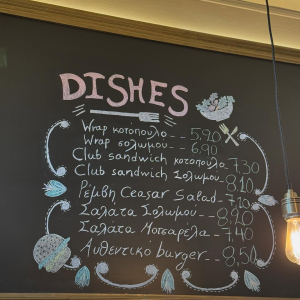 DISHES
Wrap κοτοπουλο -- 5,90
Wrap σολωμου -- 6,90
Club sandwich κοτοπουλο 7,30
Club sandwich Σολωμου 8,10
Ρέμβη Ceasar Salad - 7,10
Σαλατα Σολωμου --- 8,90
Σαλατα Μοτσαρελα -- 7,40
Αυθεντικό burger -- 8,50